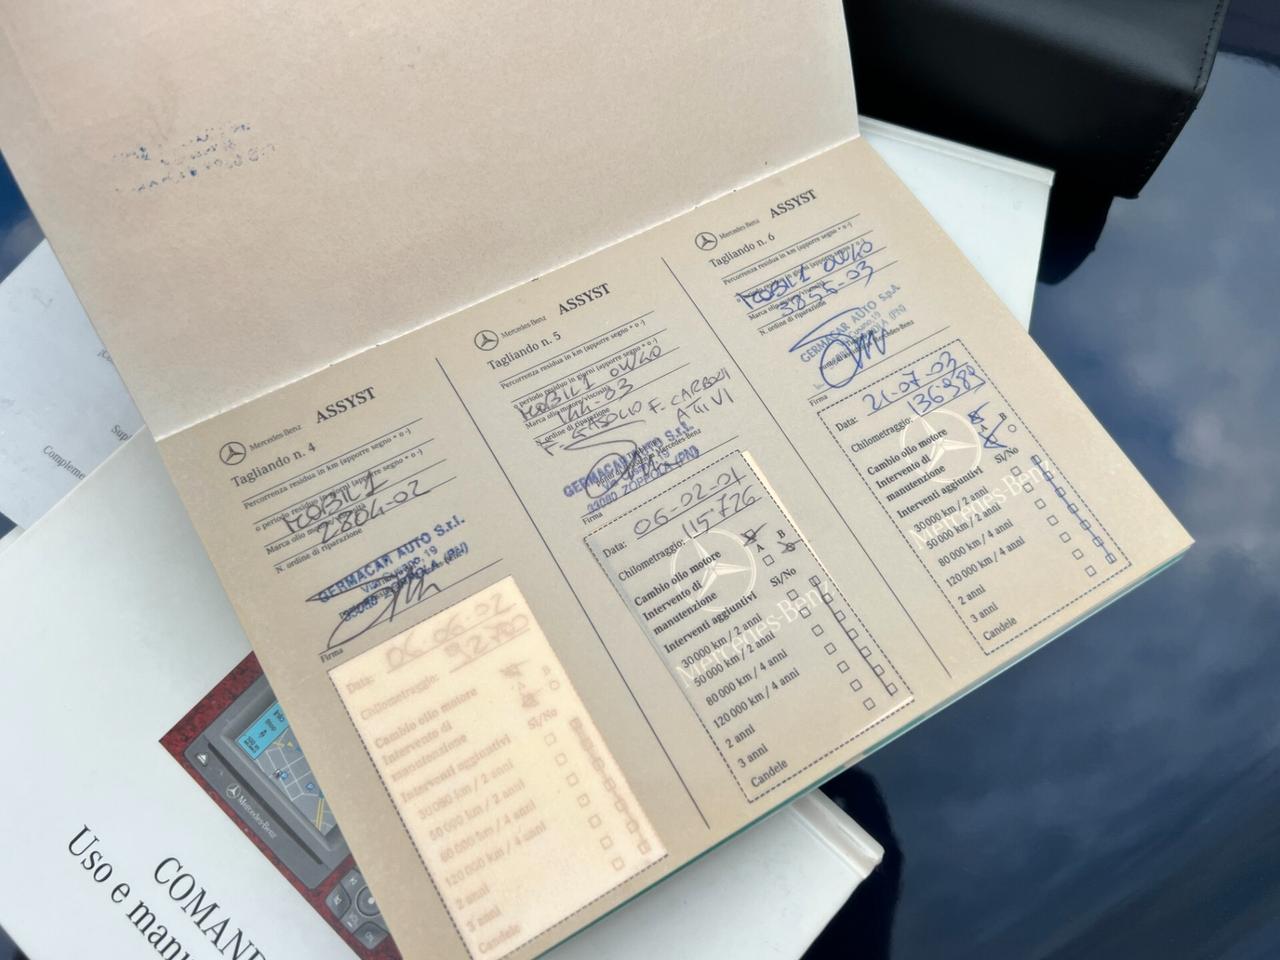 Mercedes-Benz ASSYST
Tagliando n. 4
Percorrenza residua in km (apporre segno + o -)
o periodo residuo in giorni (apporre segno + o -)
MOBIL 1
Marca olio motore/viscosità
2804-02
N. ordine di riparazione
GERMACAR AUTO S.r.l.
33080 ZOPPOLA (PN)
Firma
Data: 06-06-02
Chilometraggio: 92.700
Cambio olio motore
Intervento di A B
manutenzione
Interventi aggiuntivi Sì/No
30000 km / 2 anni
50000 km / 2 anni
80000 km / 4 anni
120000 km / 4 anni
2 anni
3 anni
Candele
Mercedes-Benz ASSYST
Tagliando n. 5
Percorrenza residua in km (apporre segno + o -)
o periodo residuo in giorni (apporre segno + o -)
MOBIL 1 0W40
Marca olio motore/viscosità
-03
N. ordine di riparazione
F. GASOLIO F. CARBONI
ATTIVI
GERMACAR AUTO S.r.l.
33080 ZOPPOLA (PN)
Firma
Data: 06-02-
Chilometraggio: 115726
Cambio olio motore
Intervento di A B
manutenzione
Interventi aggiuntivi Sì/No
30000 km / 2 anni
50000 km / 2 anni
80000 km / 4 anni
120000 km / 4 anni
2 anni
3 anni
Candele
Mercedes-Benz
Mercedes-Benz ASSYST
Tagliando n. 6
Percorrenza residua in km (apporre segno + o -)
o periodo residuo in giorni (apporre segno + o -)
MOBIL 1 0W40
Marca olio motore/viscosità
3855-03
N. ordine di riparazione
GERMACAR AUTO S.p.A.
ZOPPOLA (PN)
Firma
Data: 21-07-03
Chilometraggio: 136980
Cambio olio motore
Intervento di A B
manutenzione
Interventi aggiuntivi Sì/No
30000 km / 2 anni
50000 km / 2 anni
80000 km / 4 anni
120000 km / 4 anni
2 anni
3 anni
Candele
Mercedes-Benz
Sup
Compleme
Mercedes-Benz
COMAND
Uso e manu